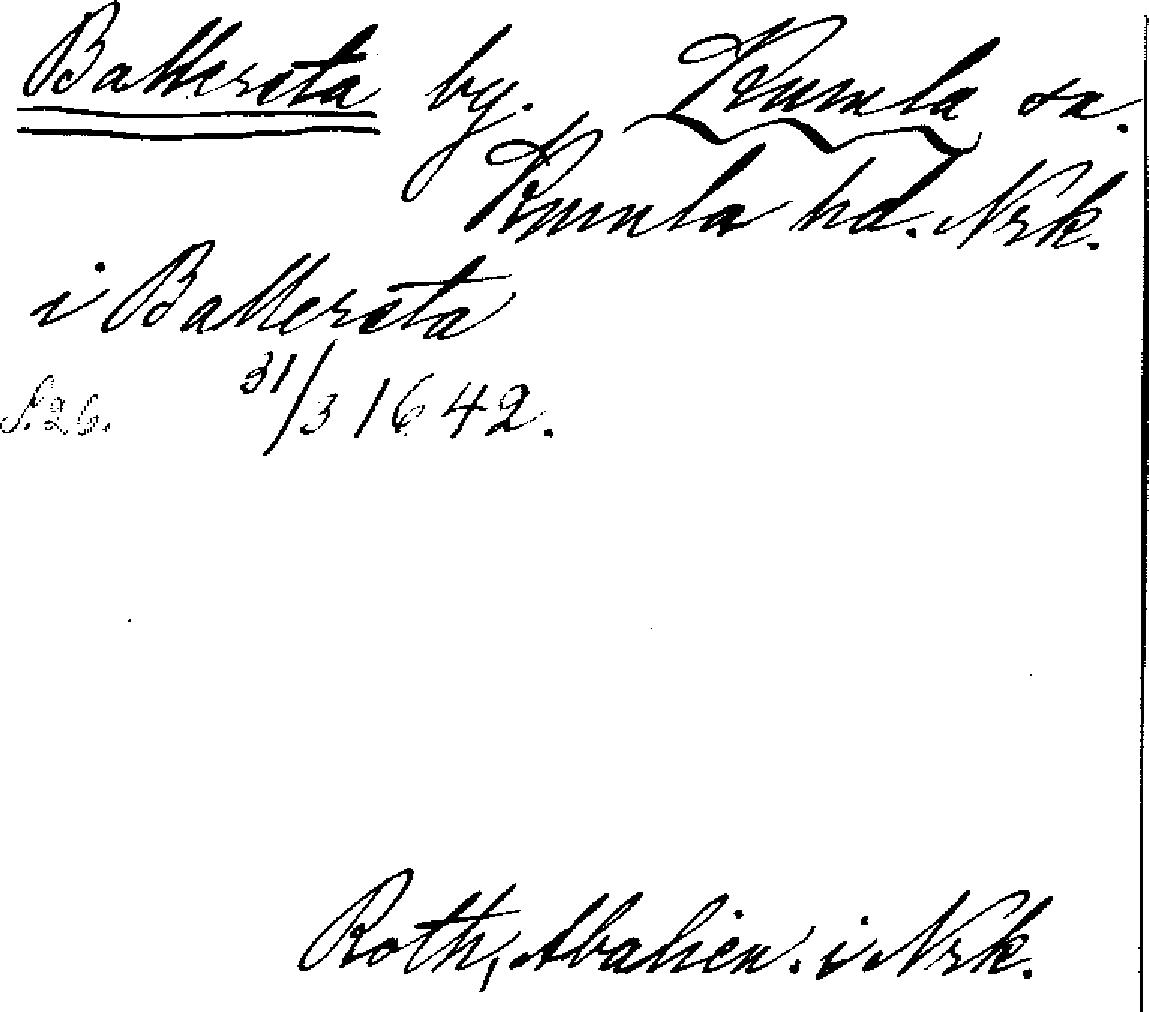 Ballersta by. Kumla sn.
Kumla hd. Nrk.
i Ballersta
S. 26. 31/3 1642.
Roth, Abalien. i Nrk.